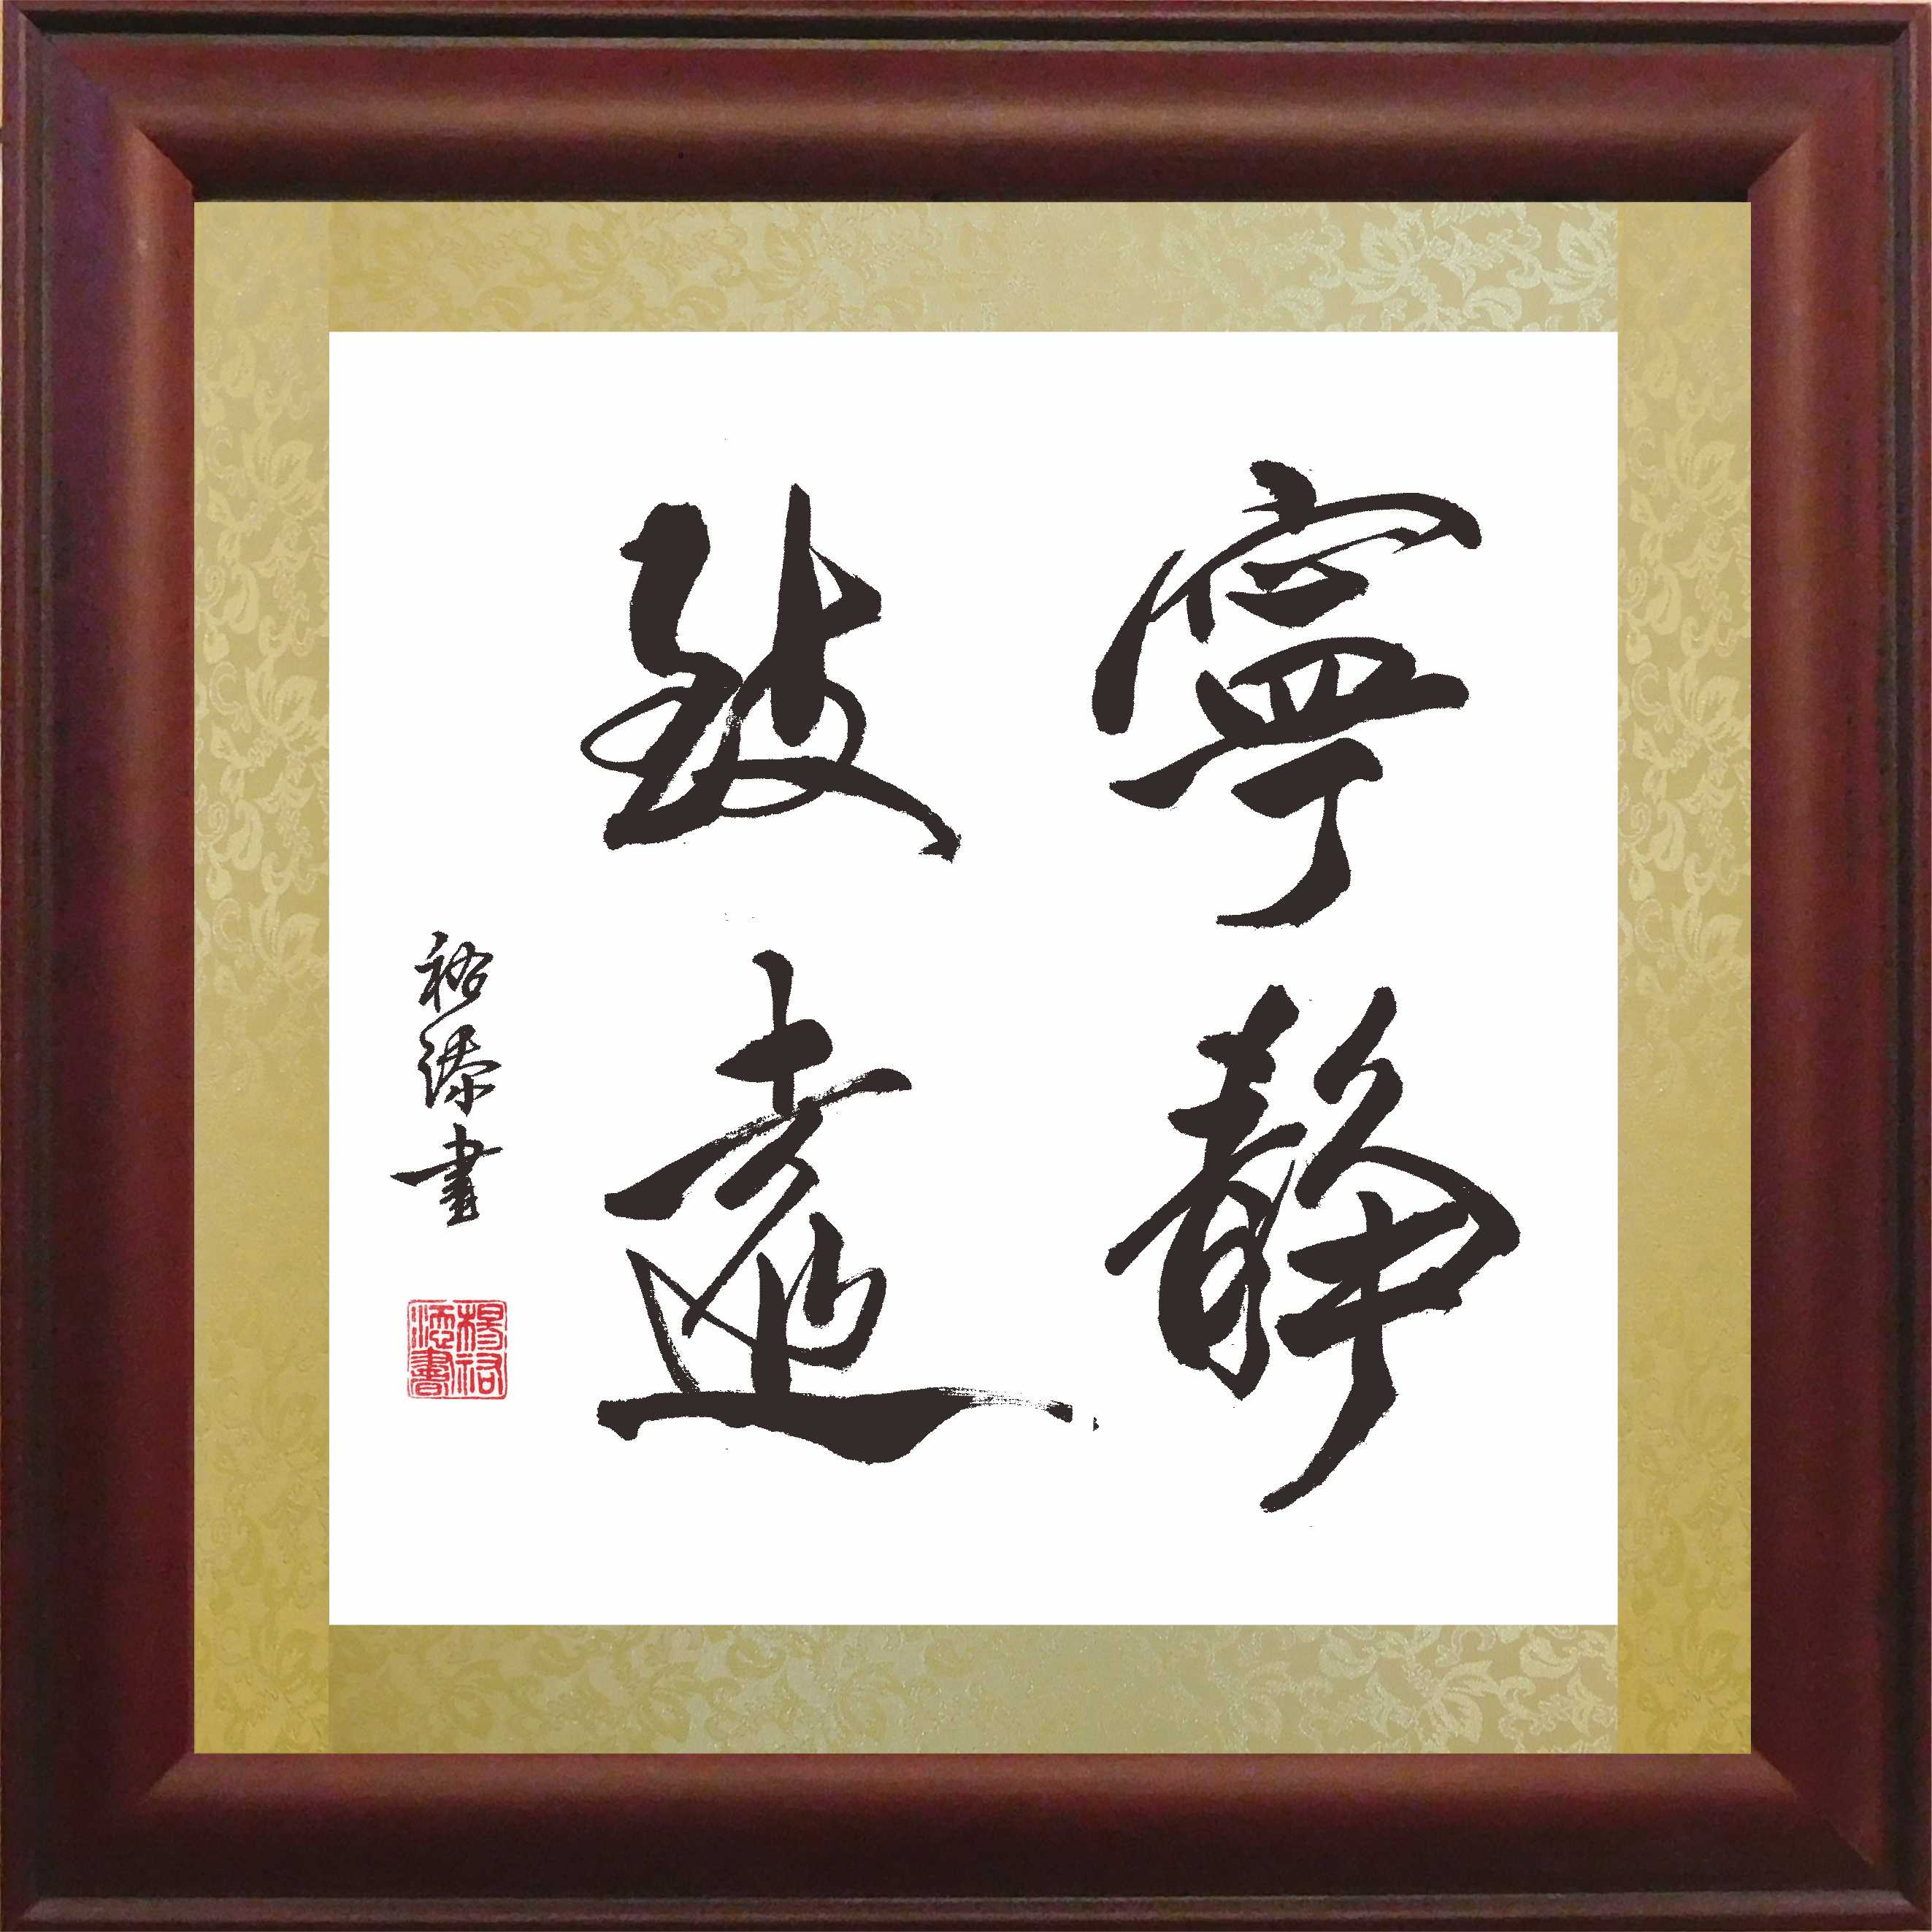 寧靜
致遠
裕添書
楊裕
添書